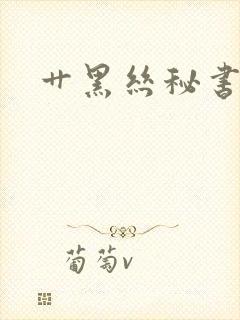 艹黑丝秘书
葡萄v